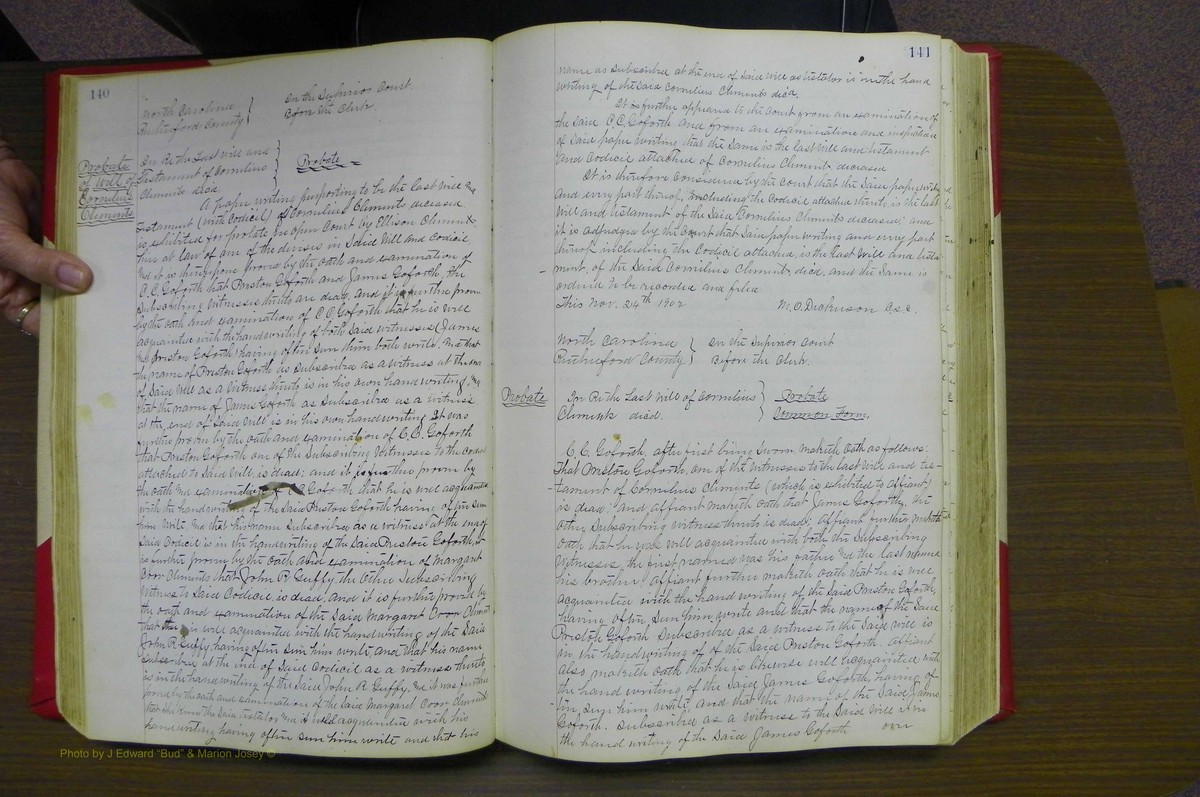 140
North Carolina } In the Superior Court.
Rutherford County } Before the Clerk
Probate
of Will of
Cornelius
Clements
In Re the Last Will and
Testament of Cornelius
Clements decd. } Probate
A paper writing purporting to be the last Will and
Testament (with Codicil) of Cornelius Clements deceased
is exhibited for probate in open Court by Ellison Clements
heir at law of one of the devisees in Said Will and Codicil
and it is thereupon proven by the oath and examination of
C.C. Goforth that Preston Goforth and James Goforth, the
Subscribing witnesses thereto are dead, and it is further proven
by the oath and examination of C C Goforth that he is well
acquainted with the handwriting of both Said witnesses (James
and Preston Goforth having often seen them both write, and that
the name of Preston Goforth as Subscribed as a witness at the end
of Said Will as a witness thereto is in his own handwriting, and
that the name of James Goforth as Subscribed as a witness
at the end of Said Will is in his own handwriting It was
further proven by the oath and examination of C.C. Goforth
that Preston Goforth one of the Subscribing Witnesses to the Codicil
attached to Said Will, is dead; and it is further proven by
the oath and examination of C C Goforth that he is well acquainted
with the handwriting of the Said Preston Goforth having often seen
him write and that his name Subscribed as a witness at the end of
Said Codicil is in the handwriting of the Said Preston Goforth, it
is further proven by the oath and examination of Margaret
Coon Clements that John R. Guffy the other Subscribing
Witness to Said Codicil, is dead, and it is further proved by
the oath and examination of the Said Margaret Coon Clements
that She is well acquainted with the handwriting of the Said
John R Guffy having often seen him write, and that his name
Subscribed at the end of Said Codicil as a witness thereto
is in the handwriting of the Said John R. Guffy, and it was further
proven by the oath and examination of the Said Margaret Coon Clements
that She knew the Said testator and is well acquainted with his
handwriting having often seen him write and that his
141
name as Subscribed at the end of Said Will as testator is in the hand
writing of the Said Cornelius Clements decd.
It is further appearing to the Court from an examination of
the Said C.C. Goforth and from an examination and inspection
of Said paper writing that the Same is the last will and testament
and Codicil attached of Cornelius Clements deceased
It is therefore Considered by the Court that the Said paper writing
and every part thereof, including the Codicil attached thereto, is the last
Will and testament of the Said Cornelius Clements deceased; and
it is adjudged by the Court that Said paper writing and every part
thereof including the Codicil attached, is the last Will and testa-
ment, of the Said Cornelius Clements, decd, and the Same is
ordered to be recorded and filed
This Nov. 24th 1902 M.O. Dickerson C.S.C.
North Carolina } In the Superior Court
Rutherford County } Before the Clerk.
Probate
In Re the Last Will of Cornelius } Probate
Clements decd. } Common Form.
C.C. Goforth, after first being sworn maketh oath as follows:
That Preston Goforth, one of the witnesses to the last will and tes-
tament of Cornelius Clements (which is exhibited to affiant)
is dead; and affiant maketh oath that James Goforth, the
other Subscribing witness thereto is dead; Affiant further maketh
oath that he was well acquainted with both the Subscribing
Witnesses, the first named was his father and the last named
his brother; Affiant further maketh oath that he is well
acquainted with the hand writing of the Said Preston Goforth,
having often seen him write and that the name of the Said
Preston Goforth Subscribed as a witness to the Said Will is
in the handwriting of of the Said Preston Goforth. affiant
also maketh oath that he is likewise well acquainted with
the hand writing of the Said James Goforth, having of-
ten, seen him write and that the name of the Said James
Goforth. Subscribed as a witness to the Said Will is in
the hand writing of the Said James Goforth over
Photo by J Edward "Bud" & Marion Josey ©